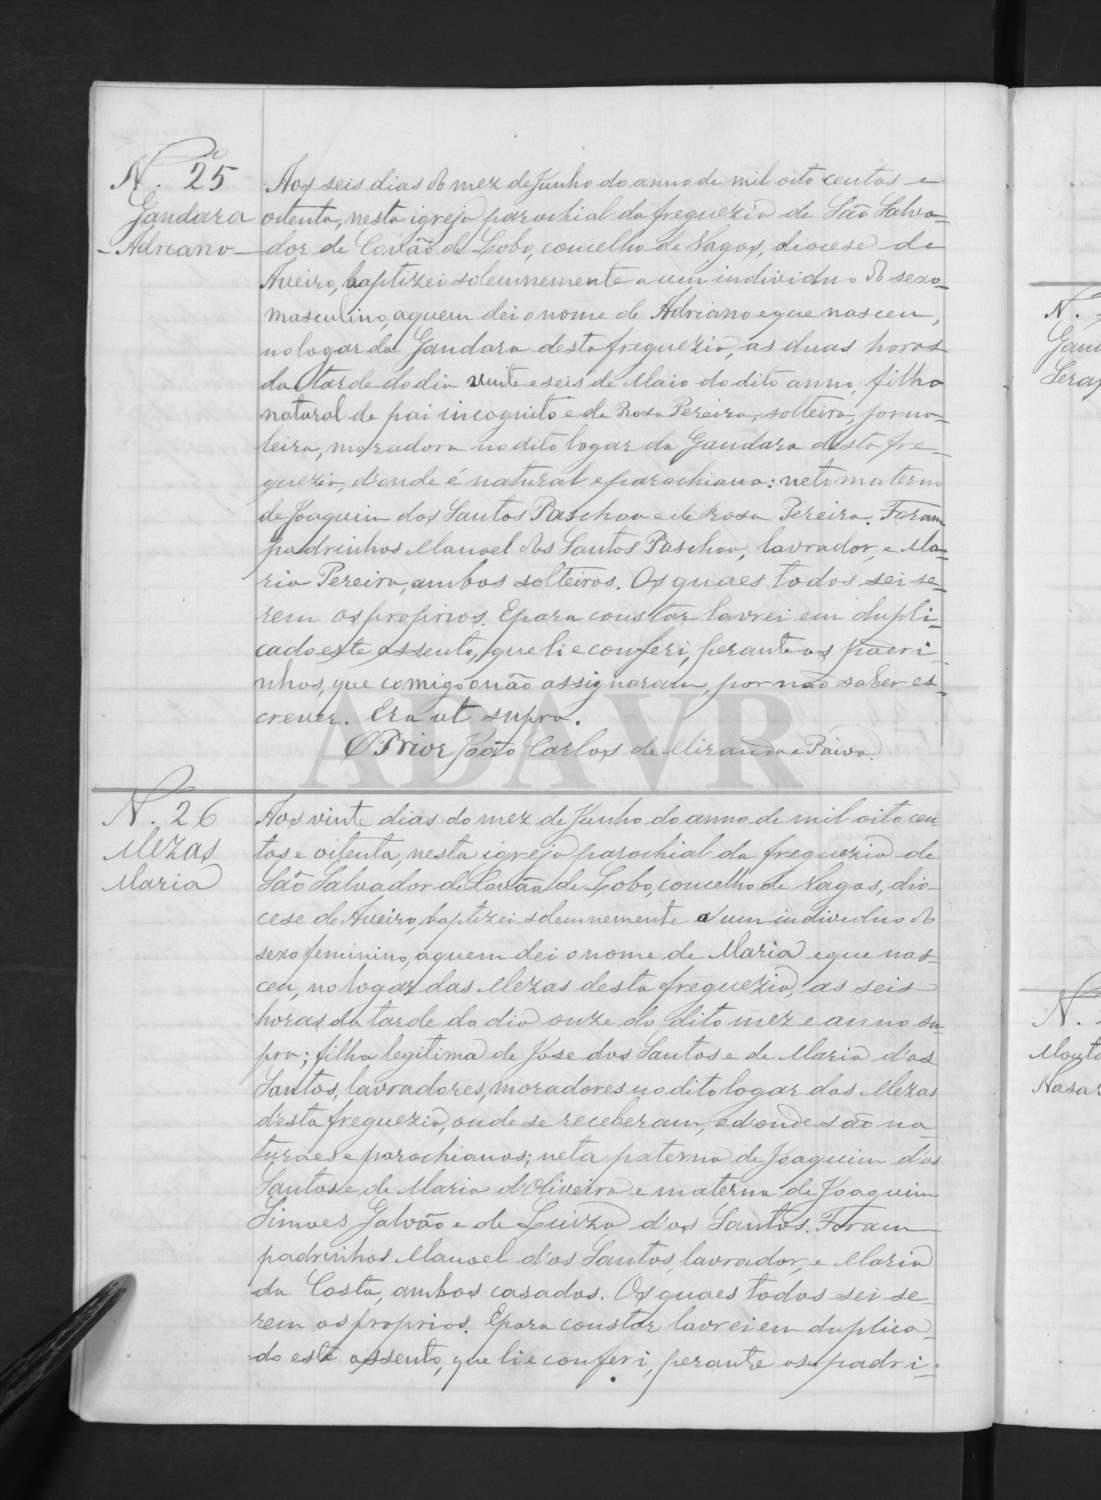 N.º 25
Gandara
Adriano
Aos seis dias do mez de Junho do anno de mil oito centos e
oitenta, nesta igreja parochial da freguezia de São Salva-
dor de Covão do Lobo, concelho de Vagos, diocese de
Aveiro, baptizei solemnemente a um individuo do sexo
masculino, a quem dei o nome de Adriano e que nasceu,
no logar da Gandara desta freguezia, as duas horas
da tarde do dia vinte e seis de Maio do dito anno, filho
natural de pai incognito e de Rosa Pereira, solteira, jorna-
leira, moradora no dito logar da Gandara desta fre-
guezia, d'onde é natural e parochiana: neto materno
de Joaquim dos Santos Paschoa e de Rosa Pereira. Foram
padrinhos Manoel dos Santos Paschoa, lavrador, e Ma-
ria Pereira, ambos solteiros. Os quaes todos sei se-
rem os proprios. E para constar lavrei em dupli-
cado este assento, que li e conferi, perante os padri-
nhos, que comigo não assignaram, por não saber es-
crever. Era ut supra.
O Prior João Carlos de Miranda e Paiva.
N. 26
Mezas
Maria
Aos vinte dias do mez de Junho do anno de mil oito cen-
tos e oitenta, nesta igreja parochial da freguezia de
São Salvador de Covão do Lobo, concelho de Vagos, dio-
cese de Aveiro, baptizei solemnemente a um individuo do
sexo feminino, a quem dei o nome de Maria e que nas-
ceu, no logar das Mezas desta freguezia, as seis
horas da tarde do dia onze do dito mez e anno su-
pra; filha legitima de Jose dos Santos e de Maria d'os
Santos, lavradores, moradores no dito logar das Mezas
d'esta freguezia, onde se receberam, e d'onde são na-
turaes e parochianos; neta paterna de Joaquim d'os
Santos e de Maria d'Oliveira e materna de Joaquim
Simoes Galvão e de Luiza d'os Santos. Foram
padrinhos Manoel d'os Santos, lavrador, e Maria
da Costa, ambos casados. Os quaes todos sei se-
rem os proprios. E para constar lavrei em duplica-
do este assento, que li e conferi, perante os padri-
ADAVR
N.